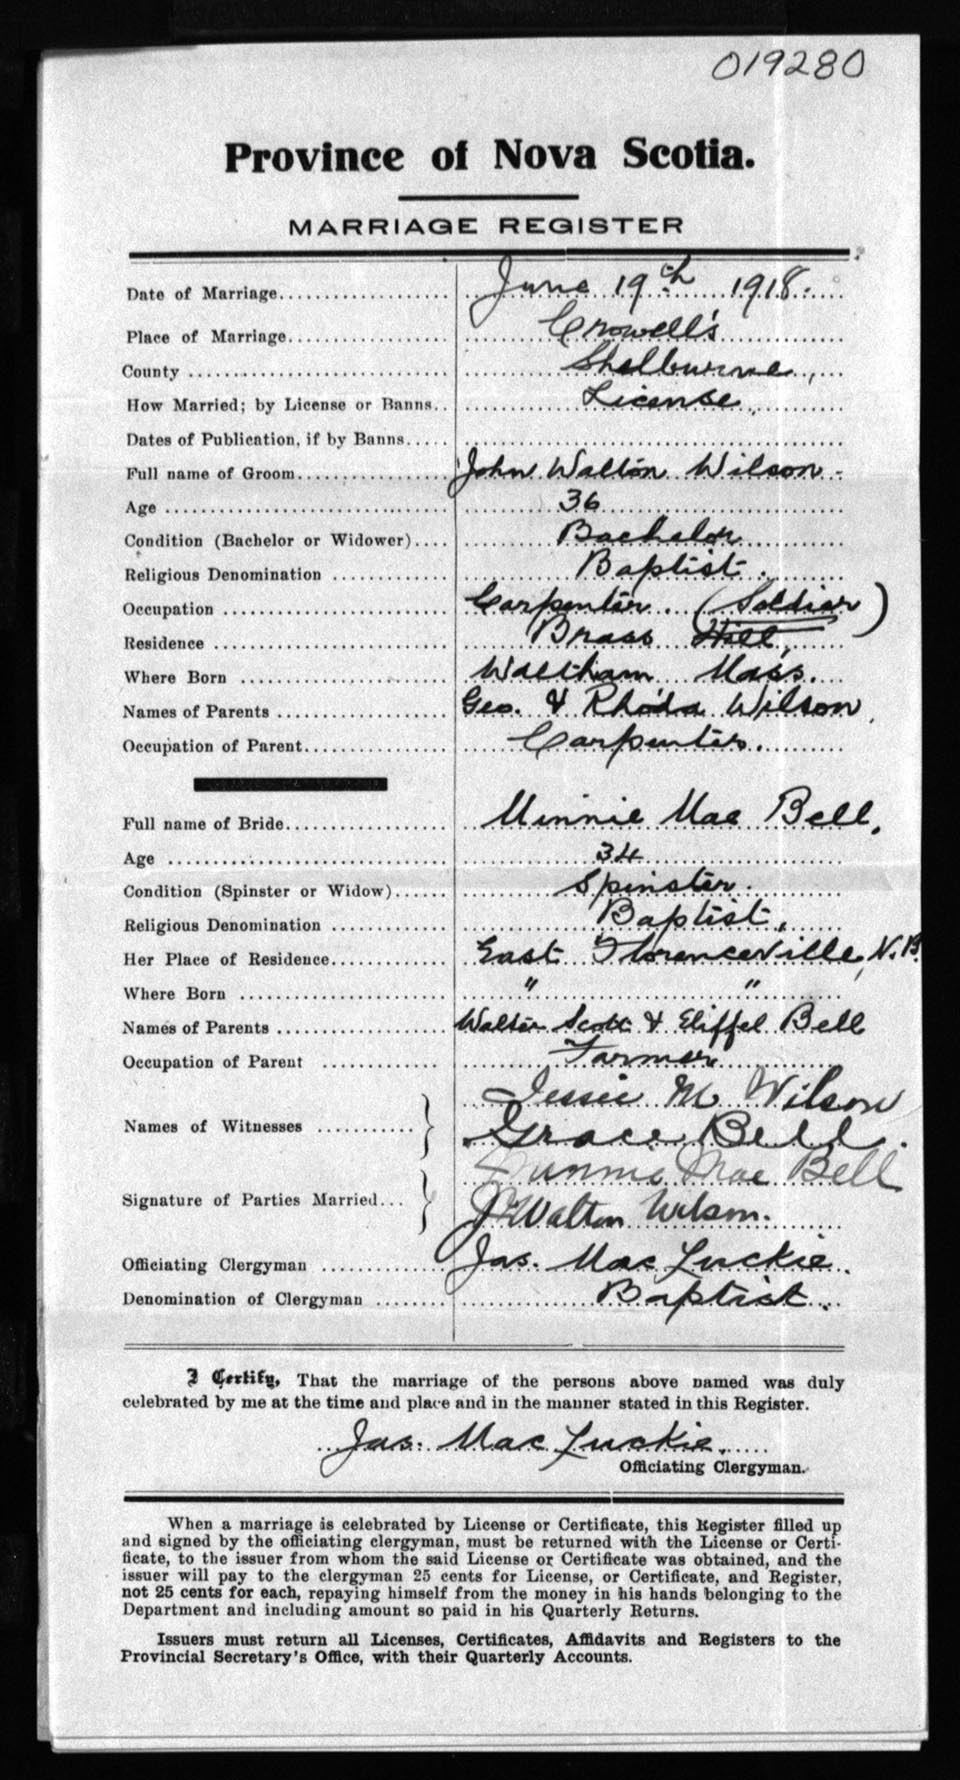 019280
Province of Nova Scotia.
MARRIAGE REGISTER
Date of Marriage June 19th 1918.
Place of Marriage Crowell's
County Shelburne,
How Married; by License or Banns License.
Dates of Publication, if by Banns
Full name of Groom John Walton Wilson
Age 36
Condition (Bachelor or Widower) Bachelor
Religious Denomination Baptist.
Occupation Carpenter. (Soldier)
Residence Brass Hill,
Where Born Waltham Mass.
Names of Parents Geo. & Rhoda Wilson,
Occupation of Parent Carpenter.
Full name of Bride Minnie Mae Bell,
Age 34
Condition (Spinster or Widow) Spinster.
Religious Denomination Baptist,
Her Place of Residence East Florenceville, N.B.
Where Born " "
Names of Parents Walter Scott & Eliffel Bell
Occupation of Parent Farmer,
Names of Witnesses Jessie M Wilson
Grace Bell.
Signature of Parties Married Minnie Mae Bell
J. Walton Wilson.
Officiating Clergyman Jas. MacLuckie.
Denomination of Clergyman Baptist.
I Certify, That the marriage of the persons above named was duly
celebrated by me at the time and place and in the manner stated in this Register.
Jas. MacLuckie.
Officiating Clergyman.
When a marriage is celebrated by License or Certificate, this Register filled up
and signed by the officiating clergyman, must be returned with the License or Certi-
ficate, to the issuer from whom the said License or Certificate was obtained, and the
issuer will pay to the clergyman 25 cents for License, or Certificate, and Register,
not 25 cents for each, repaying himself from the money in his hands belonging to the
Department and including amount so paid in his Quarterly Returns.
Issuers must return all Licenses, Certificates, Affidavits and Registers to the
Provincial Secretary's Office, with their Quarterly Accounts.